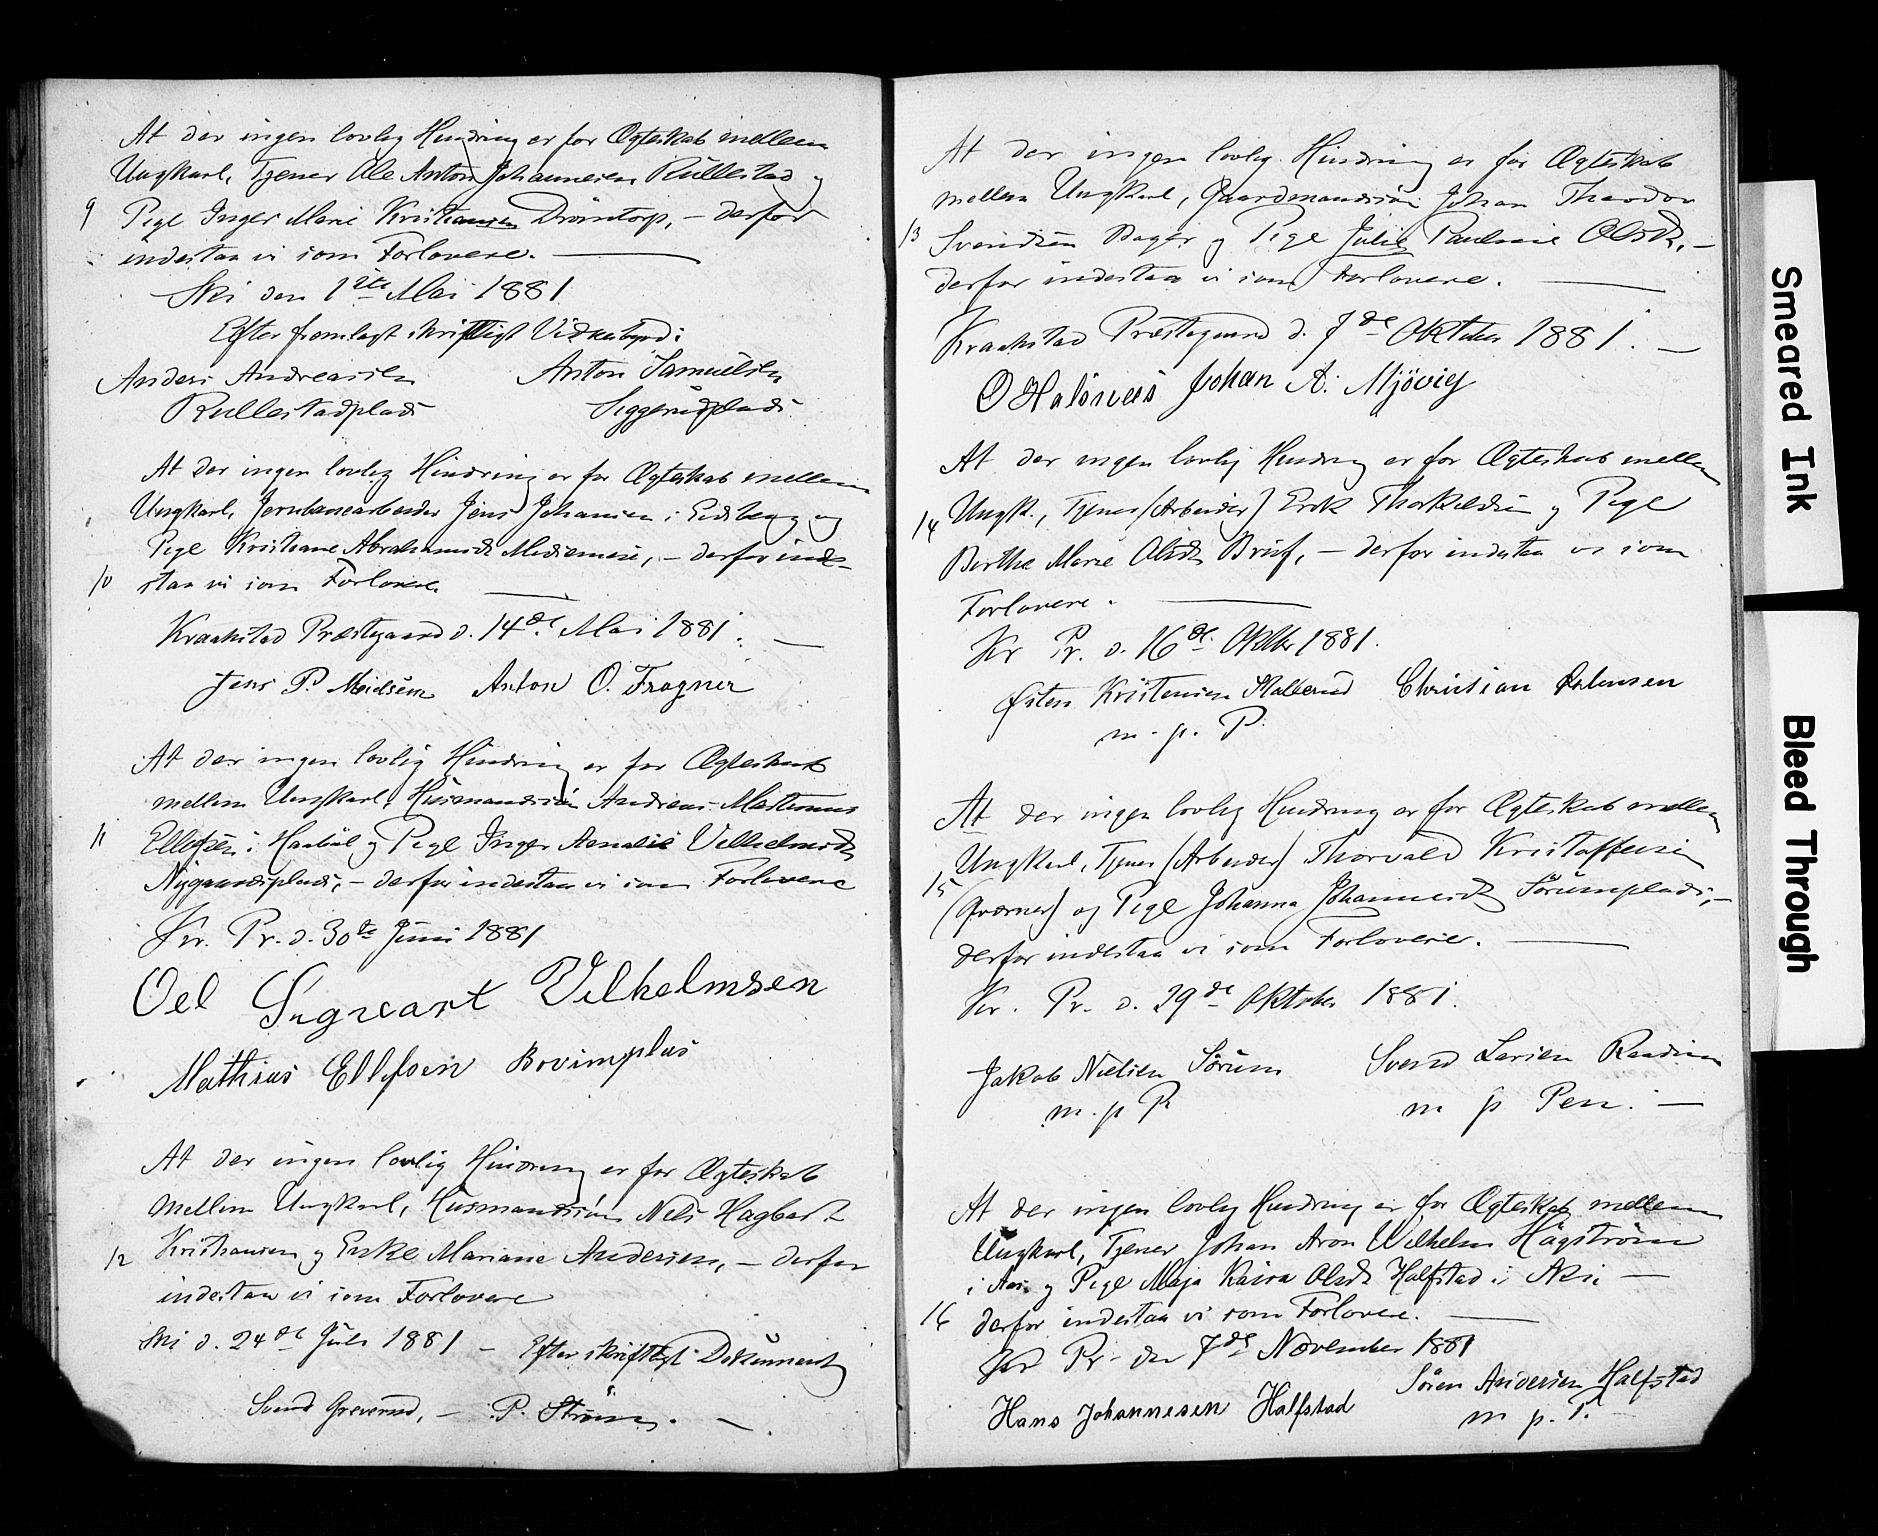 At der ingen lovlig Hindring er for Ægteskab mellem
Ungkarl, Tjener Ole Anton Johannesen Rullestad og
9 Pige Inger Marie Kristiansen Drömtorp, — derfor
indestaa vi som Forlovere. —
Ski den 1ste Mai 1881
Efter fremlagt skriftligt Vidnesbyrd:
Anders Andreassen Anton Samuelsen
Rullestadplads Siggerudplads
At der ingen lovlig Hindring er for Ægteskab mellem
Ungkarl, Jernbanearbeider Jens Johansen i Eidsberg og
Pige Kristiane Abrahamsdt — derfor inde-
10 staa vi som Forlovere. —
Kraakstad Præstegaard d. 14de Mai 1881. —
Jens P. Anton O. Fragner
At der ingen lovlig Hindring er for Ægteskab
mellem Ungkarl, Husmandssön Andreas Martinius
11 Ellefsen i Haaböl og Pige Inger Amalie Vilhelmsdt
Nygaardsplads, — derfor indestaa vi som Forlovere
Kr. Pr. d. 30te Juni 1881
Oel Sugvart Vilhelmsen
Mathias Ellefsen Bovimplas
At der ingen lovlig Hindring er for Ægteskab
mellem Ungkarl, Husmandssön Nels Hagbart
12 Kristiansen og Enke Mariane Andersen, — derfor
indestaa vi som Forlovere
Ski d. 24de Juli 1881 — Efter skriftligt Dokument
Svend Greverud, — P. Ström. —
At der ingen lovlig Hindring er for Ægteskab
mellem Ungkarl, Gaardmandssön Johan Theodor
13 Svendsen Bager og Pige Julie Pauline Olsdt, —
derfor indestaa vi som Forlovere. —
Kraakstad Præstegaard d. 7de Oktober 1881. —
O Halsnæs Johan A. Mjövig
At der ingen lovlig Hindring er for Ægteskab mellem
14 Ungk., Tjener (Arbeider) Erik Thorkildsen og Pige
Berthe Marie Olsdt — derfor indestaa vi som
Forlovere. —
Kr Pr. d. 16de Oktbr 1881.
Östen Kristensen Christian
m. p. P.
At der ingen lovlig Hindring er for Ægteskab mellem
Ungkarl, Tjener (Arbeider) Thorvald Kristoffersen
15 (Kværner) og Pige Johanna Johannesdt Sörumplads, —
derfor indestaa vi som Forlovere. —
Kr. Pr. d. 29de Oktober 1881.
Jakob Nielsen Sörum Svend Larsen
m. p P m p Pen. —
At der ingen lovlig Hindring er for Ægteskab mellem
Ungkarl, Tjener Johan Aron Wilhelm Hägström
i Aas og Pige Maja Kaisa Olsdt Halfstad i Ski —
16 derfor indestaa vi som Forlovere. —
Kr Pr. den 7de November 1881
Hans Johannesen Halfstad Sören Andersen Halfstad
m p. P.
Smeared Ink
Bleed Through